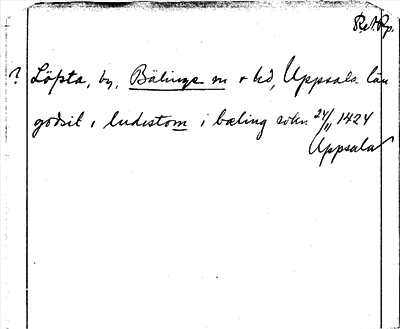 Rel. Pp.
? Löpta, by, Bälinge sn o hd, Uppsala län
godsit i ludestom i bæling sokn 24/11 1424
Uppsala